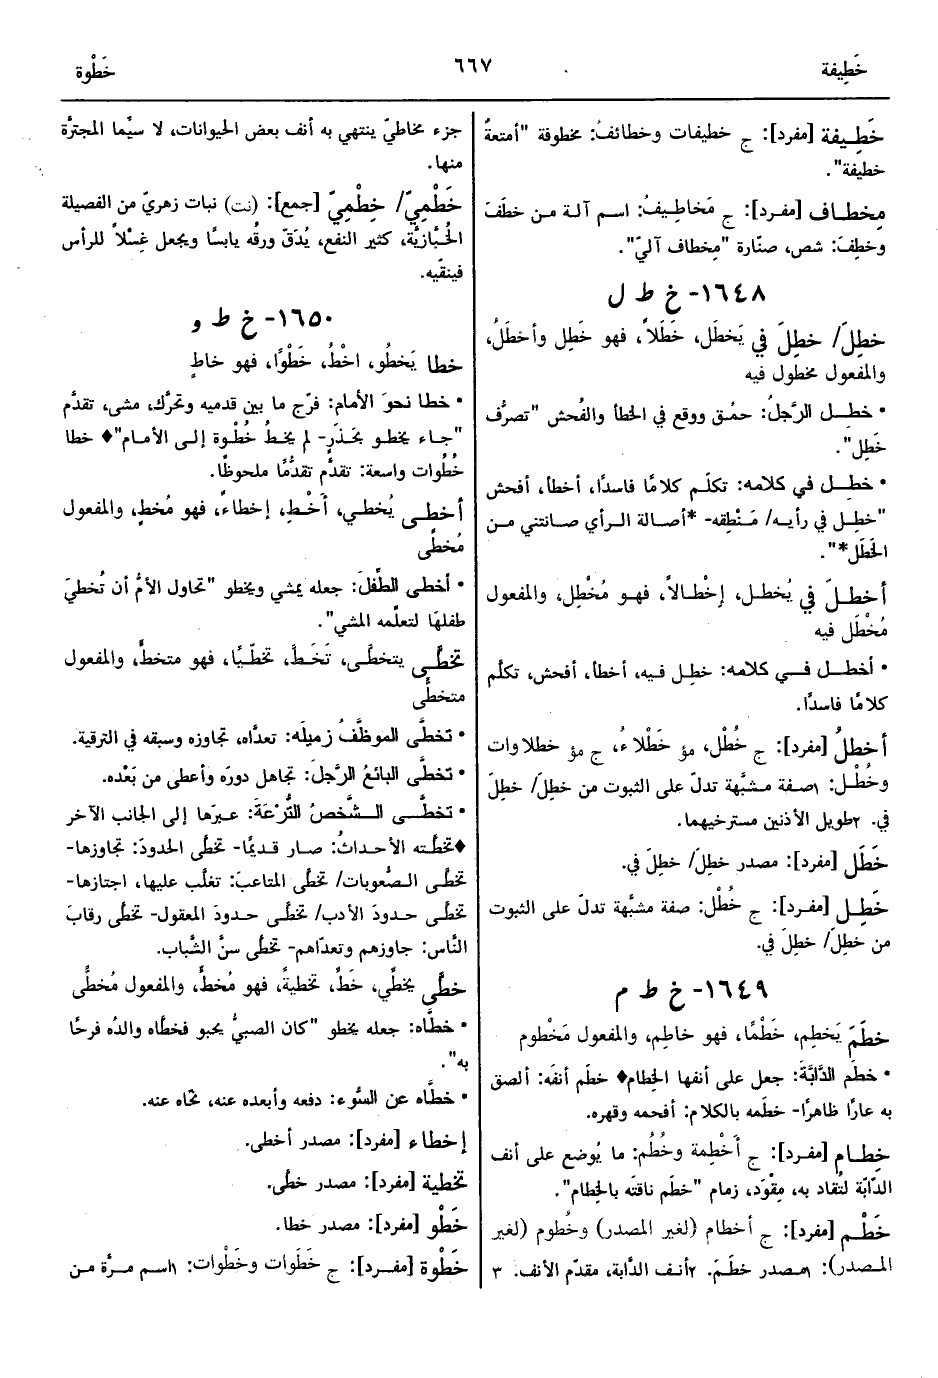 خَطِيفة
٦٦٧
خَطْوة
خَطِيفة [مفرد]: ج خطيفات وخطائفُ: مخطوفة "أمتعةٌ
خطيفة".
مِخطاف [مفرد]: ج مَخاطِيفُ: اسم آلة من خطَفَ
وخطِفَ: شص، صنّارة "مِخطاف آليّ".
١٦٤٨- خ ط ل
خطِلَ/ خطِلَ في يَخطَل، خَطَلاً، فهو خَطِل وأخطَلُ،
والمفعول مخطول فيه
• خطِل الرَّجلُ: حمُق ووقع في الخطأ والفُحش "تصرُّف
خَطِل".
• خطِل في كلامه: تكلّم كلامًا فاسدًا، أخطأ، أفحش
"خطِل في رأيه/ مَنْطِقه- *أصالة الرأي صانتني من
الخَطَل*".
أخطلَ في يُخطل، إخْطالاً، فهو مُخْطِل، والمفعول
مُخْطَل فيه
• أخطل في كلامه: خطِل فيه، أخطأ، أفحش، تكلّم
كلامًا فاسدًا.
أخطلُ [مفرد]: ج خُطْل، مؤ خَطْلاءُ، ج مؤ خطلاوات
وخُطْل: ١صفة مشبَّهة تدلّ على الثبوت من خطِلَ/ خطِلَ
في. ٢طويل الأذنين مسترخيهما.
خَطَل [مفرد]: مصدر خطِلَ/ خطِلَ في.
خَطِل [مفرد]: ج خُطْل: صفة مشبَّهة تدلّ على الثبوت
من خطِلَ/ خطِلَ في.
١٦٤٩- خ ط م
خطَمَ يَخطِم، خَطْمًا، فهو خاطِم، والمفعول مَخْطوم
• خطَم الدَّابَّةَ: جعل على أنفها الخِطام♦ خطَم أنفَه: ألصق
به عارًا ظاهرًا- خطَمه بالكلام: أفحمه وقهره.
خِطام [مفرد]: ج أَخْطِمة وخُطُم: ما يُوضع على أنف
الدّابّة لتُقاد به، مِقْوَد، زمام "خطَم ناقتَه بالخِطام".
خَطْم [مفرد]: ج أخطام (لغير المصدر) وخُطوم (لغير
المصدر): ١مصدر خطَمَ. ٢أنف الدَّابة، مقدّم الأنف. ٣
جزء مخاطيّ ينتهي به أنف بعض الحيوانات، لا سيَّما المجترَّة
منها.
خَطْمِيّ/ خِطْمِيّ [جمع]: (نت) نبات زهريّ من الفصيلة
الخُبّازيَّة، كثير النفع، يُدَقّ ورقُه يابسًا ويجعل غِسْلاً للرأس
فينقّيه.
١٦٥٠- خ ط و
خطا يَخطُو، اخْطُ، خَطْوًا، فهو خاطٍ
• خطا نحوَ الأمام: فرّج ما بين قدميه وتحرَّك، مشى، تقدَّم
"جاء يخطو بحَذَرٍ- لم يخطُ خُطْوة إلى الأمام"♦ خطا
خُطُوات واسعة: تقدَّم تقدُّمًا ملحوظًا.
أخطى يُخطي، أَخْطِ، إخطاءً، فهو مُخطٍ، والمفعول
مُخطًى
• أخطى الطِّفلَ: جعله يمشي ويخطو "تحاول الأمُّ أن تُخطيَ
طفلهَا لتعلّمه المشي".
تخطَّى يتخطَّى، تَخَطَّ، تخطّيًا، فهو متخطٍّ، والمفعول
متخطًّى
• تخطَّى الموظَّفُ زميلَه: تعدَّاه، تجاوزه وسبقه في الترقية.
• تخطَّى البائعُ الرَّجلَ: تجاهل دورَه وأعطى من بَعْده.
• تخطَّى الشَّخصُ التُّرْعَةَ: عبرَها إلى الجانب الآخر
♦تخطَّته الأحداثُ: صار قديمًا- تخطَّى الحدودَ: تجاوزها-
تخطَّى الصُّعوبات/ تخطَّى المتاعبَ: تغلَّب عليها، اجتازها-
تخطَّى حدودَ الأدب/ تخطَّى حدودَ المعقول- تخطَّى رقابَ
النَّاس: جاوزهم وتعدّاهم- تخطَّى سنَّ الشَّباب.
خطَّى يخطِّي، خَطِّ، تخطيةً، فهو مُخطٍّ، والمفعول مُخطًّى
• خطَّاه: جعله يخطو "كان الصبيُّ يحبو فخطَّاه والدُه فرحًا
به".
• خطَّاه عن السُّوء: دفعه وأبعده عنه، نحّاه عنه.
إخطاء [مفرد]: مصدر أخطى.
تخطية [مفرد]: مصدر خطَّى.
خَطْو [مفرد]: مصدر خطا.
خَطْوة [مفرد]: ج خَطَوات وخَطْوات: ١اسم مرَّة من